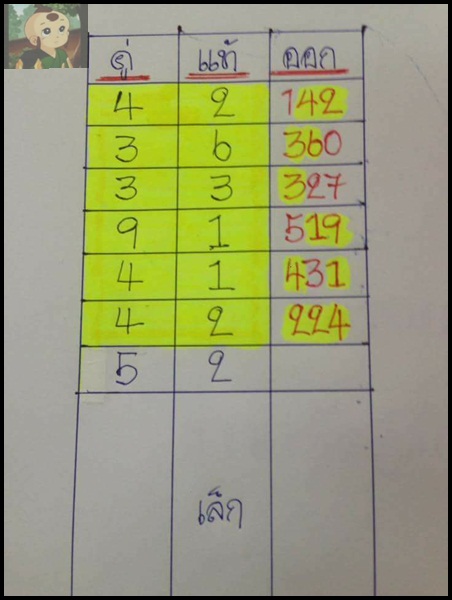 คู่ แท้ ออก
4 2 142
3 6 360
3 3 327
9 1 519
4 1 431
4 2 224
5 2
เล็ก